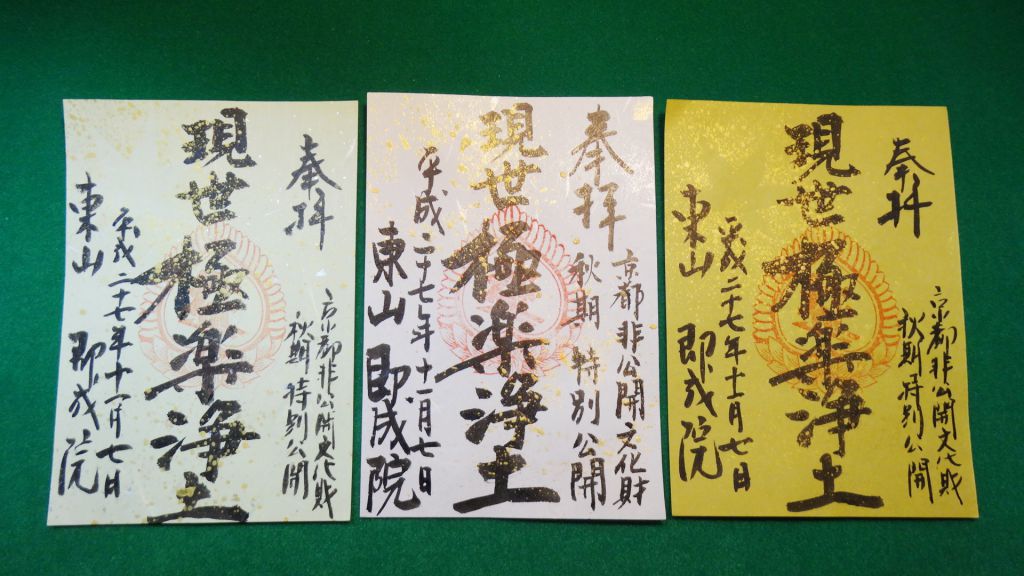 奉拝
京都非公開文化財
秋期特別公開
現世極楽浄土
平成二十七年十一月七日
東山 即成院
奉拝
京都非公開文化財
秋期特別公開
現世極楽浄土
平成二十七年十一月七日
東山 即成院
奉拝
京都非公開文化財
秋期特別公開
現世極楽浄土
平成二十七年十一月七日
東山 即成院